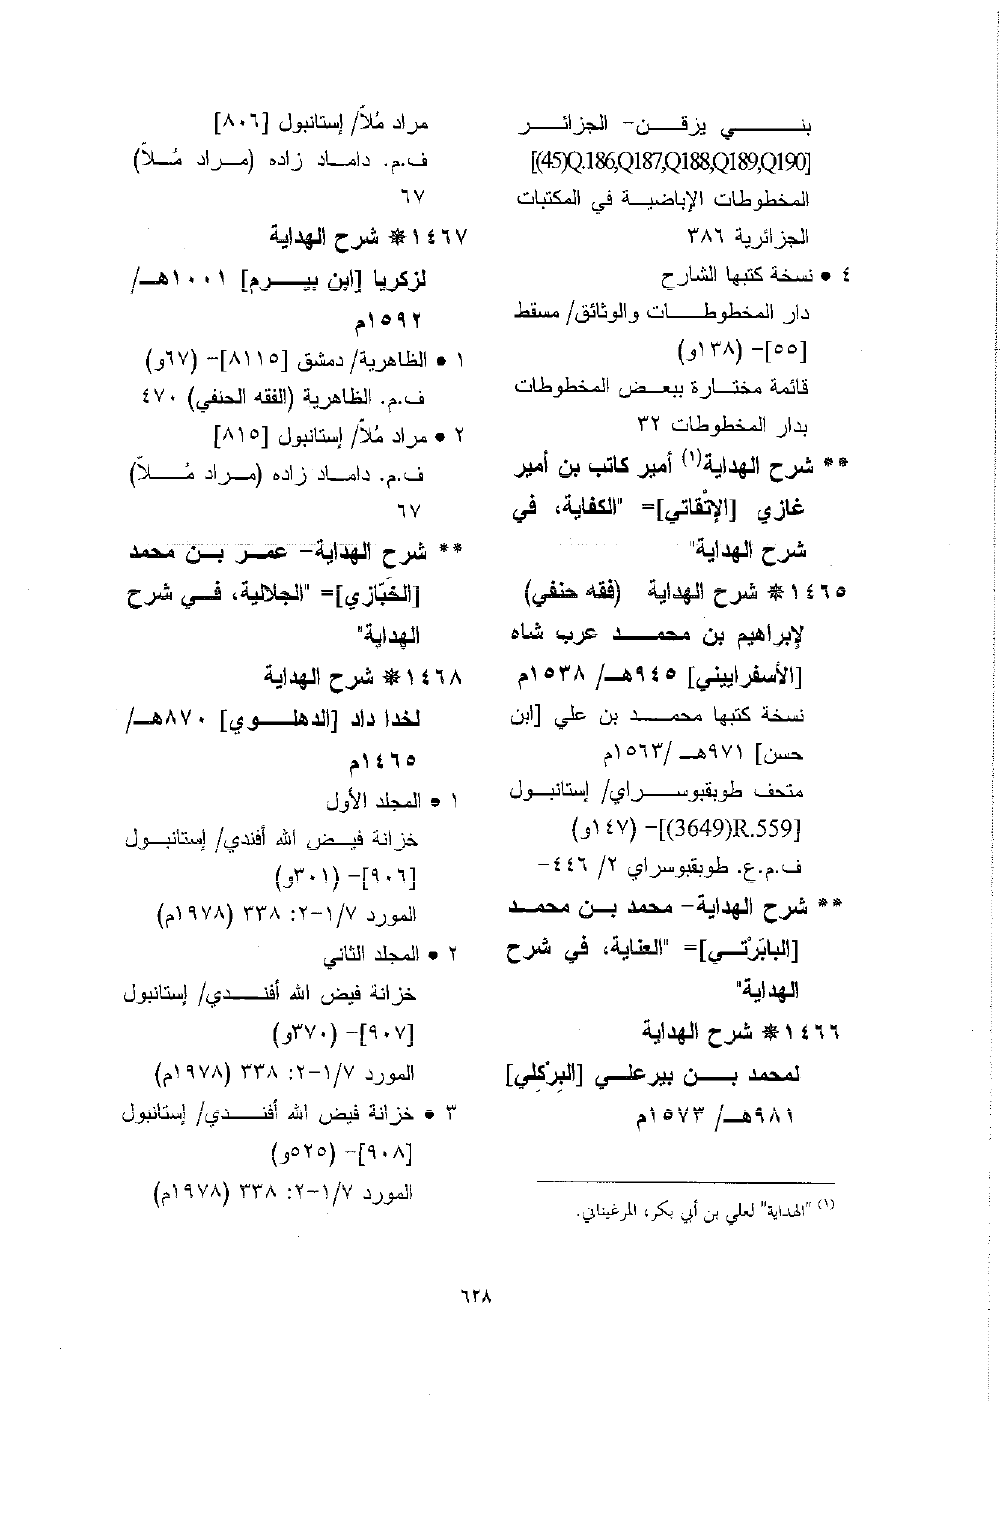 بني يزقن- الجزائر
[(45)Q.186,Q187,Q188,Q189,Q190]
المخطوطات الإباضية في المكتبات
الجزائرية ٣٨٦
٤ • نسخة كتبها الشارح
دار المخطوطات والوثائق/ مسقط
[٥٥]- (١٣٨و)
قائمة مختارة ببعض المخطوطات
بدار المخطوطات ٣٢
** شرح الهداية(١) أمير كاتب بن أمير
غازي [الإتْقاني]= "الكفاية، في
شرح الهداية"
١٤٦٥* شرح الهداية (فقه حنفي)
لإبراهيم بن محمد عرب شاه
[الأسفراييني] ٩٤٥هـ/ ١٥٣٨م
نسخة كتبها محمد بن علي [ابن
حسن] ٩٧١هـ /١٥٦٣م
متحف طوبقبوسراي/ إستانبول
[3649)R.559)]- (١٤٧و)
ف.م.ع. طوبقبوسراي ٢/ ٤٤٦-
** شرح الهداية- محمد بن محمد
[البابَرْتي]= "العناية، في شرح
الهداية"
١٤٦٦* شرح الهداية
لمحمد بن بيرعلي [البِرْكِلي]
٩٨١هـ/ ١٥٧٣م
(١) "الهداية" لعلي بن أبي بكر، المرغيناني.
مراد مُلاّ/ إستانبول [٨٠٦]
ف.م. داماد زاده (مراد مُلاّ)
٦٧
١٤٦٧* شرح الهداية
لزكريا [ابن بيرم] ١٠٠١هـ/
١٥٩٢م
١ • الظاهرية/ دمشق [٨١١٥]- (٦٧و)
ف.م. الظاهرية (الفقه الحنفي) ٤٧٠
٢ • مراد مُلاّ/ إستانبول [٨١٥]
ف.م. داماد زاده (مراد مُلاّ)
٦٧
** شرح الهداية- عمر بن محمد
[الخَبّازي]= "الجلالية، في شرح
الهداية"
١٤٦٨* شرح الهداية
لخدا داد [الدهلوي] ٨٧٠هـ/
١٤٦٥م
١ • المجلد الأول
خزانة فيض الله أفندي/ إستانبول
[٩٠٦]- (٣٠١و)
المورد ١/٧-٢: ٣٣٨ (١٩٧٨م)
٢ • المجلد الثاني
خزانة فيض الله أفندي/ إستانبول
[٩٠٧]- (٣٧٠و)
المورد ١/٧-٢: ٣٣٨ (١٩٧٨م)
٣ • خزانة فيض الله أفندي/ إستانبول
[٩٠٨]- (٥٢٥و)
المورد ١/٧-٢: ٣٣٨ (١٩٧٨م)
٦٢٨